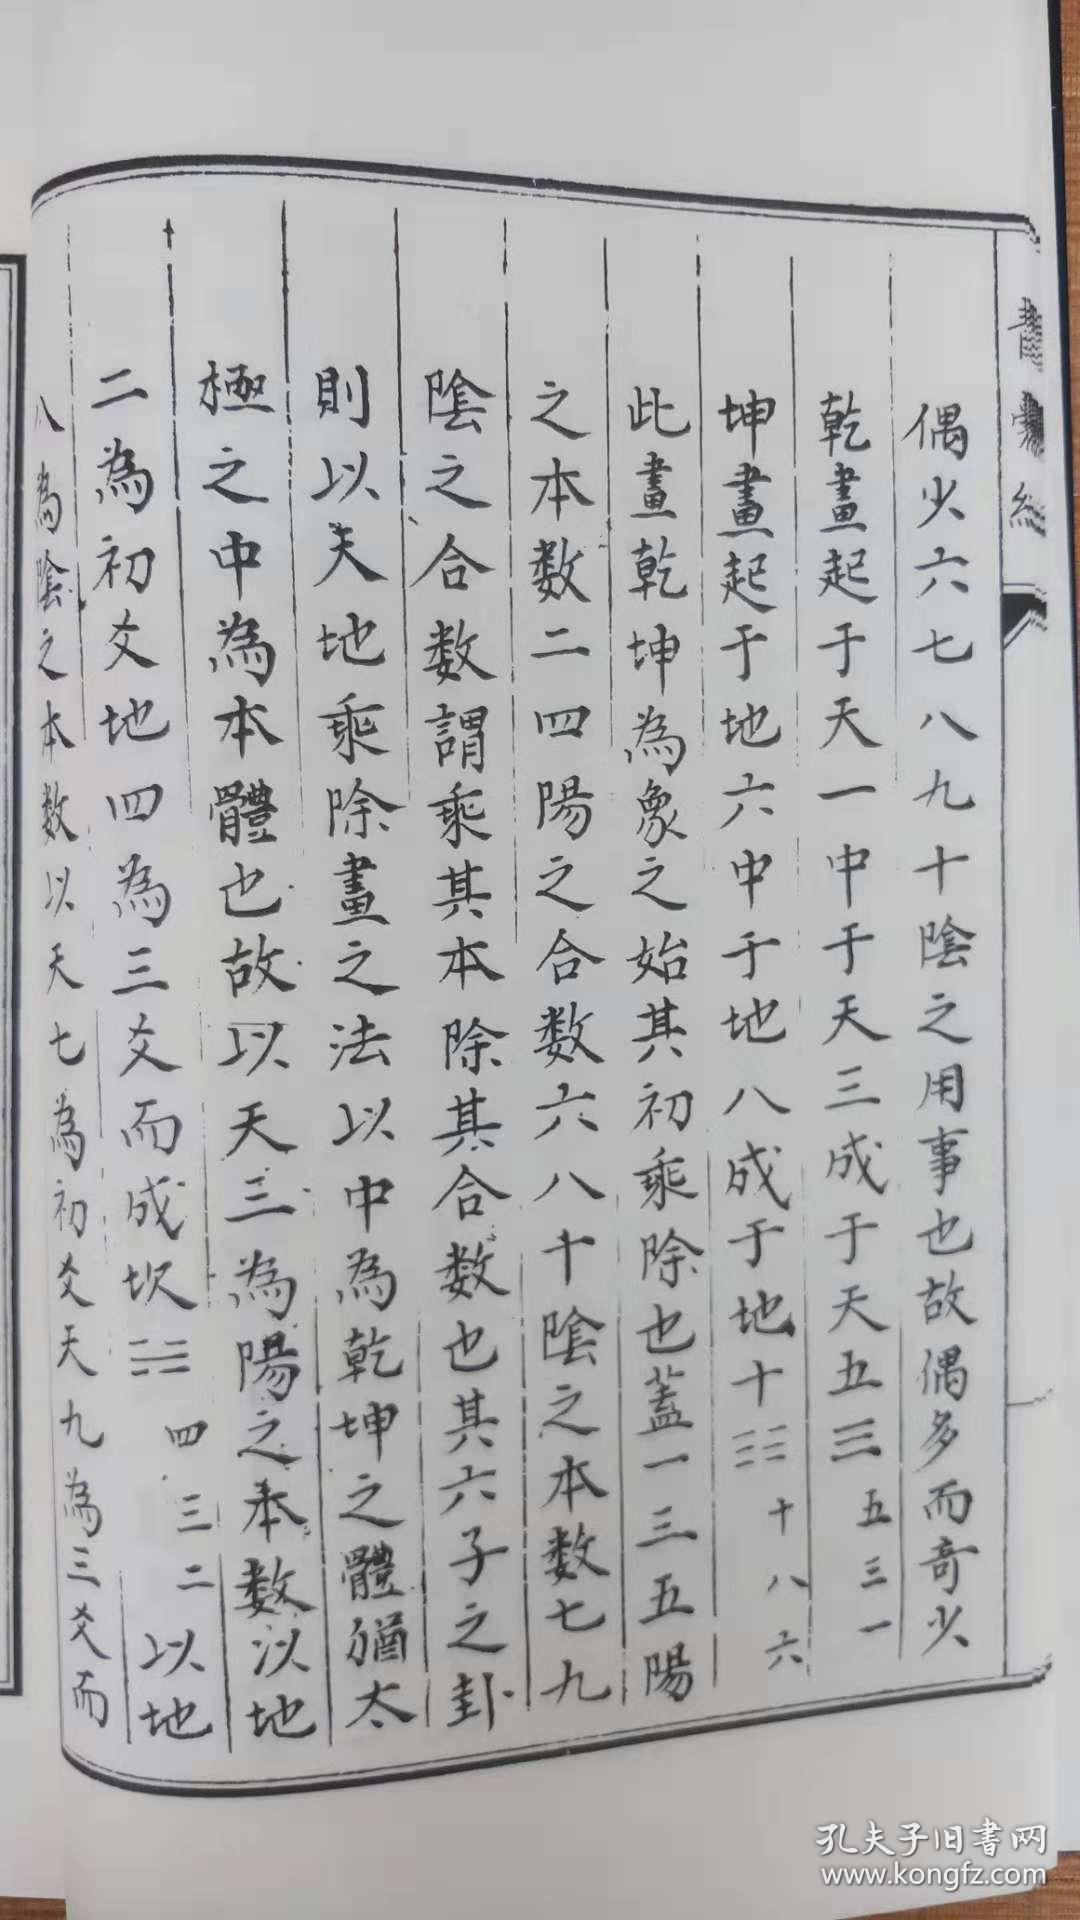 青囊經
偶少六七八九十陰之用事也故偶多而奇少
乾畫起于天一中于天三成于天五☰五三一
坤畫起于地六中于地八成于地十☷十八六
此畫乾坤為象之始其初乘除也蓋一三五陽
之本数二四陽之合数六八十陰之本数七九
陰之合数謂乘其本除其合数也其六子之卦
則以天地乘除畫之法以中為乾坤之體猶太
極之中為本體也故以天三為陽之本数以地
二為初爻地四為三爻而成坎☵四三二以地
八為陰之本数以天七為初爻天九為三爻而
孔夫子旧書网
www.kongfz.com